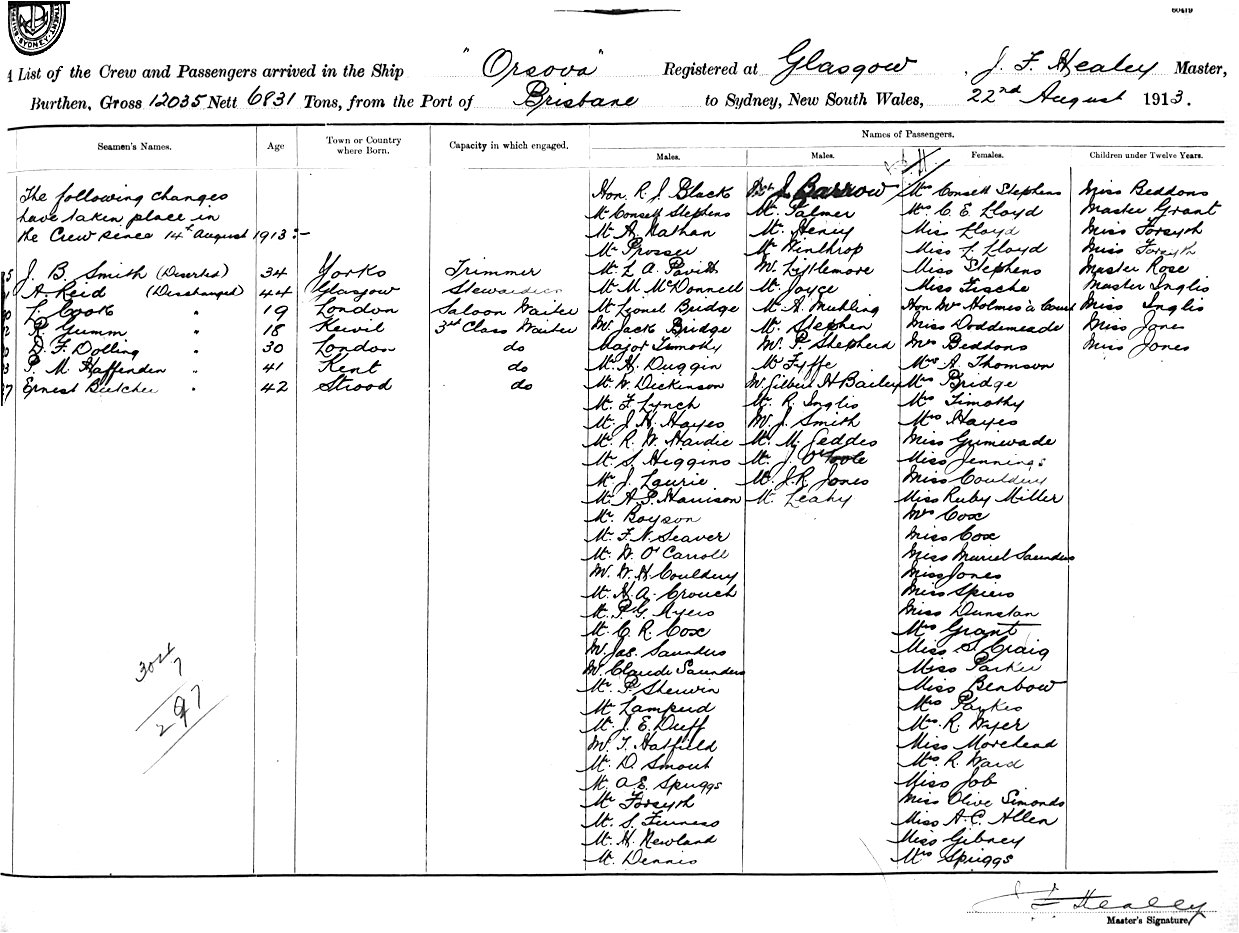 60479
SYDNEY
A List of the Crew and Passengers arrived in the Ship "Orsova" Registered at Glasgow, J. F. Healey Master,
Burthen, Gross 12035 Nett 6831 Tons, from the Port of Brisbane to Sydney, New South Wales, 22nd August 1913.
Seamen's Names. Age Town or Country where Born. Capacity in which engaged. Names of Passengers.
Males. Males. Females. Children under Twelve Years.
The following changes
have taken place in
the Crew since 14th August 1913:-
J. B. Smith (Deserted) 34 Yorks Trimmer
A. Reid (Discharged) 44 Glasgow
L. Cook " 19 London Saloon Waiter
R. Gumm " 18 3rd Class Waiter
D. F. Dolling " 30 London do
P. M. Haffenden " 41 Kent do
Ernest Butcher " 42 Strood do
304
7
297
Hon. R. J. Black
Mr Consett Stephens
Mr A. Nathan
Mr Prosser
Mr L. A. Pavitt
Mr M. McDonnell
Mr Lionel Bridge
Mr Jack Bridge
Major Timothy
Mr H. Duggin
Mr W. Dickinson
Mr F. Lynch
Mr J. H. Hayes
Mr R. W. Hardie
Mr S. Higgins
Mr J. Laurie
Mr A. P. Harrison
Mr Boyson
Mr F. N. Seaver
Mr W. O'Carroll
Mr W. H. Couldery
Mr H. A. Crouch
Mr P. G. Myers
Mr C. R. Cox
Mr Jas. Saunders
Mr Claude Saunders
Mr P. Sherwin
Mr Lamperd
Mr J. E. Duff
Mr T. Hatfield
Mr D. Smout
Mr A. E. Spriggs
Mr Forsyth
Mr S. Furness
Mr H. Newland
Mr Dennis
J. Barrow
Mr Palmer
Mr Henry
Mr Winthrop
Mr Littlemore
Mr Joyce
Mr A. Muhling
Mr Stephen
Mr P. Shepherd
Mr Fyffe
Mr Gilbert H Bailey
Mr R. Inglis
Mr J. Smith
Mr M. Geddes
Mr J. O'Toole
Mr J. R. Jones
Mr Leahy
Mrs Consett Stephens
Mrs C. E. Lloyd
Miss Lloyd
Miss L. Lloyd
Miss Stephens
Miss Fische
Hon Mrs Holmes à Court
Miss Doddemeade
Mrs Beddons
Mrs A. Thomson
Mrs Bridge
Mrs Timothy
Mrs Hayes
Miss Grimwade
Miss Jennings
Miss Couldery
Miss Ruby Miller
Mrs Cox
Miss Cox
Miss Muriel Saunders
Miss Jones
Miss Spiers
Miss Dunstan
Mrs Grant
Miss S. Craig
Miss Parker
Miss Benbow
Mrs Parkes
Mrs R. Wyer
Miss Morehead
Mrs R. Ward
Miss Job
Miss Olive Simonds
Miss A. C. Allen
Miss Gibney
Mrs Spriggs
Miss Beddons
Master Grant
Miss Forsyth
Miss Forsyth
Master Rose
Master Inglis
Miss Inglis
Miss Jones
Miss Jones
J F Healey
Master's Signature,